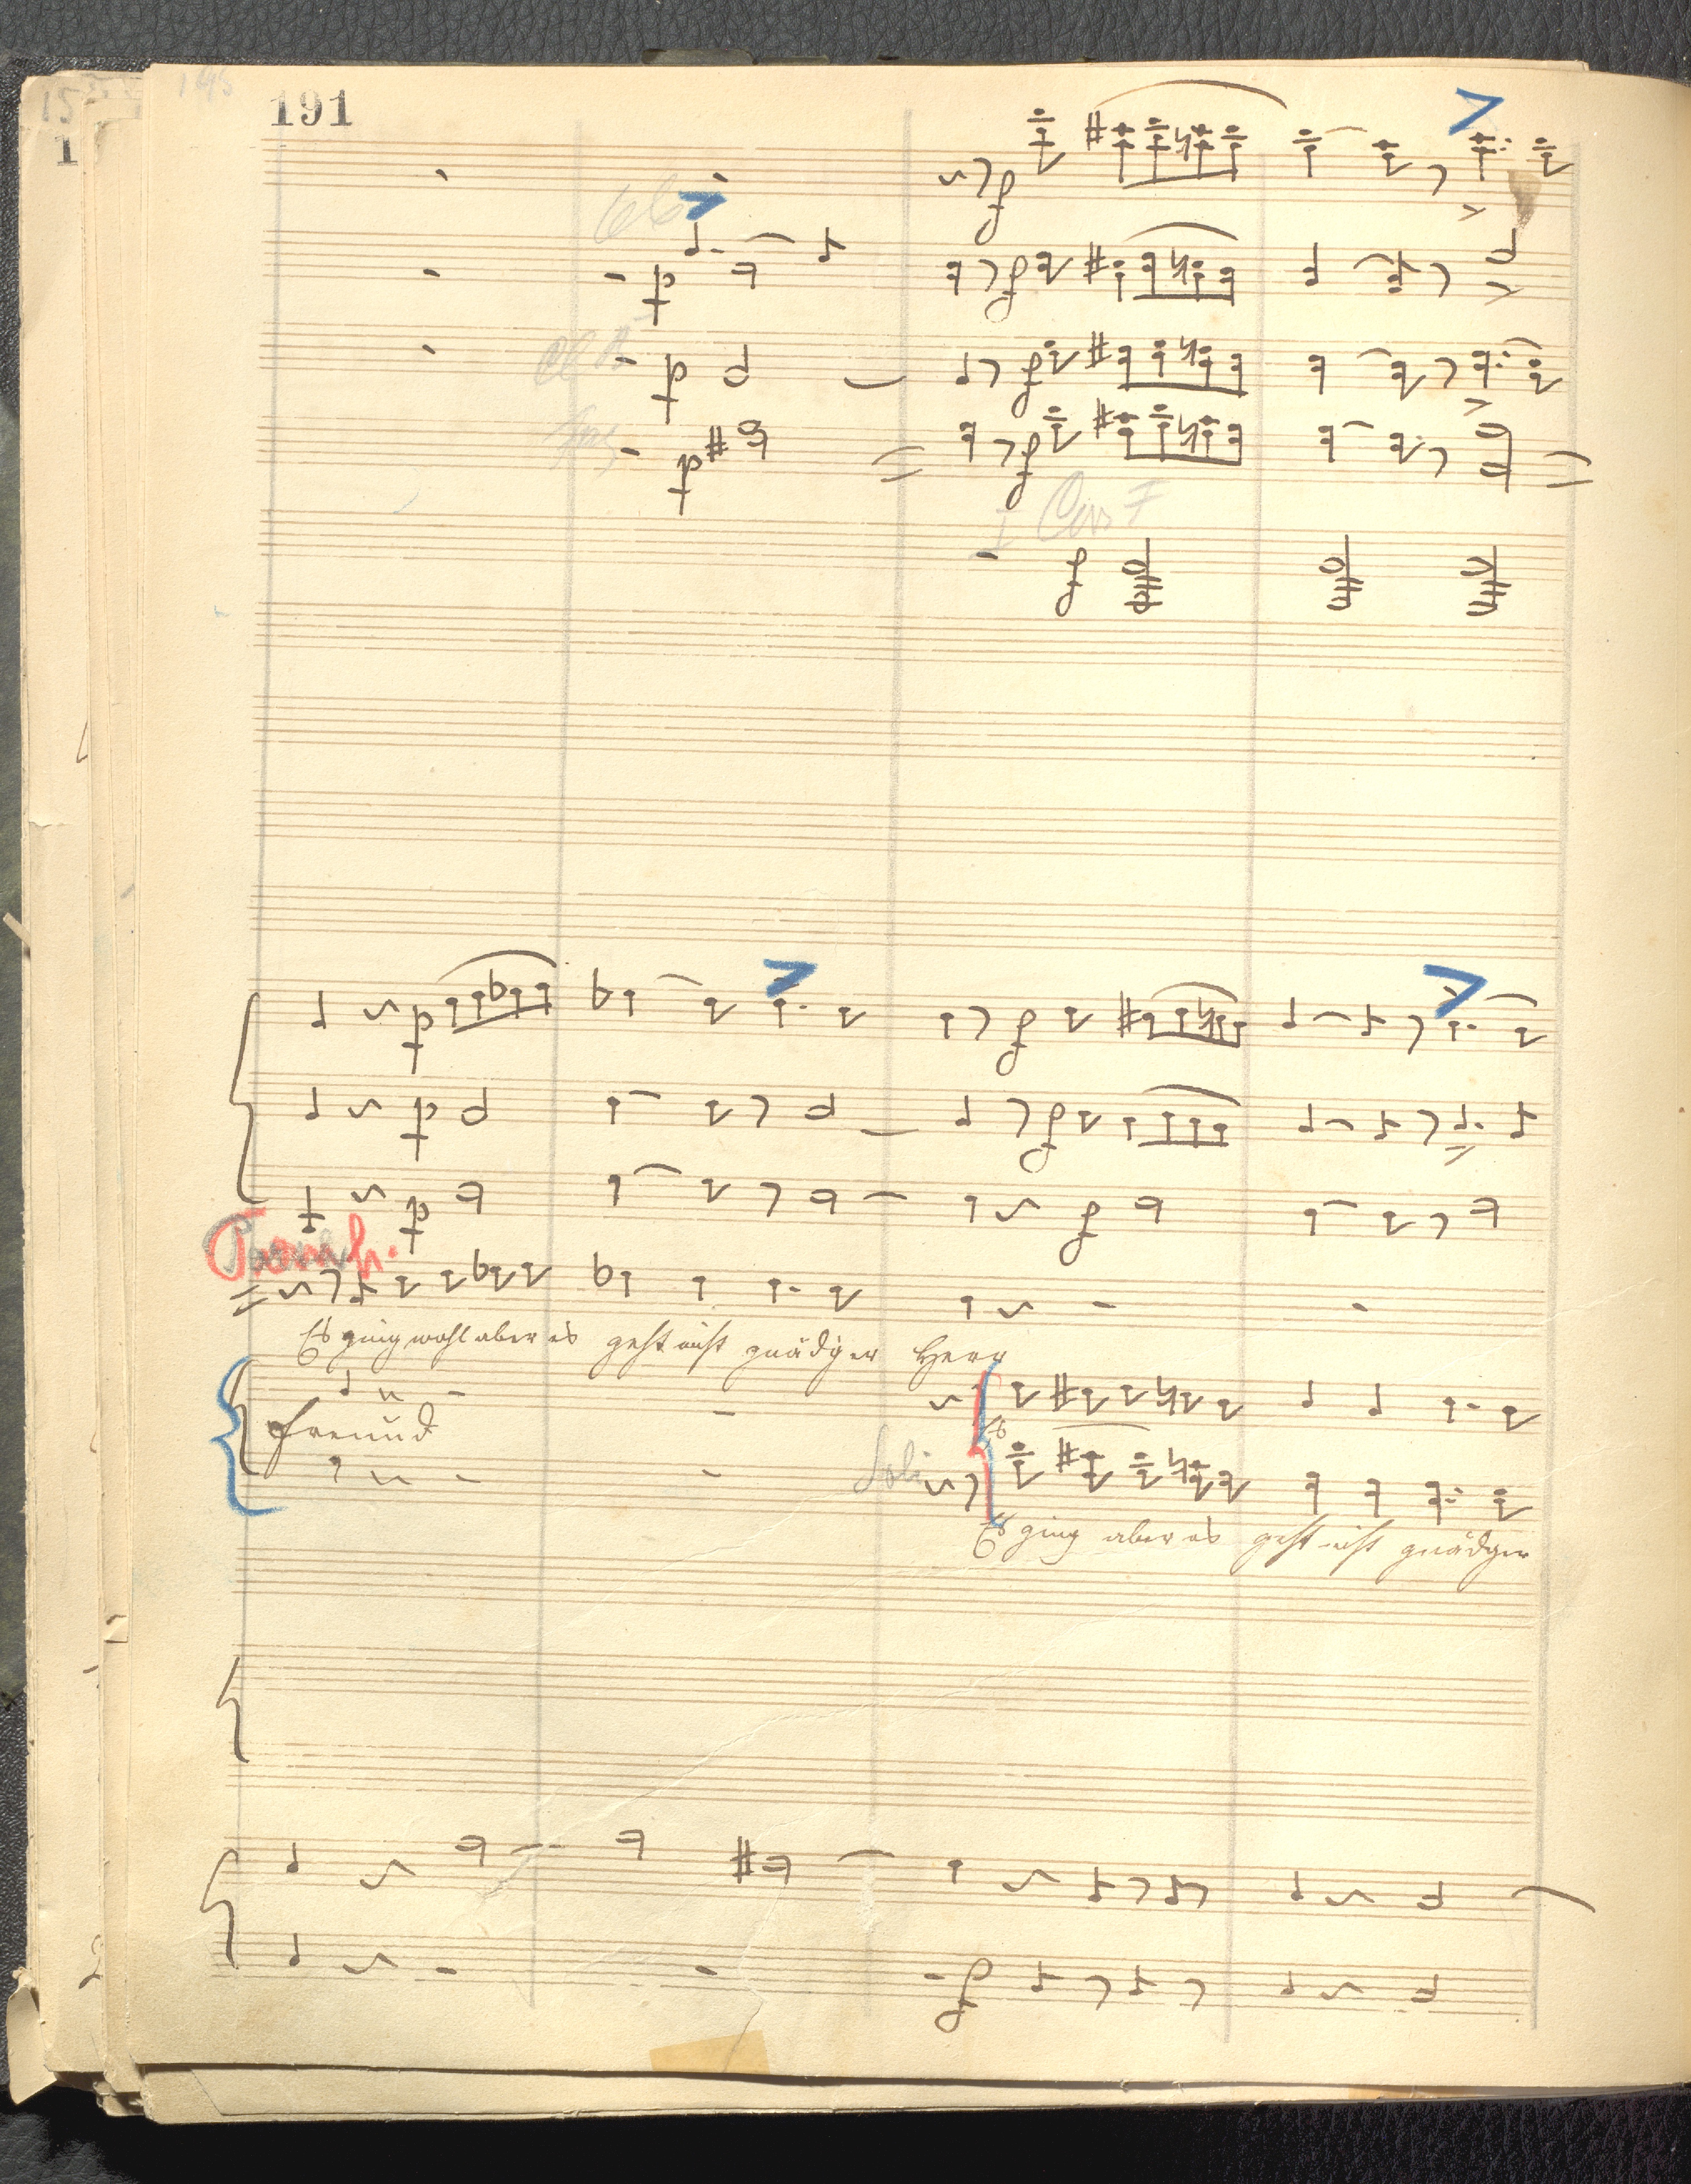 15
1
191
Ob
Cl A
Fag
I Cor F
Tromb.
Es ging wohl aber es geht nicht gnädiger Herr
Freund
Es
Soli
Es ging aber es geht nicht gnädger